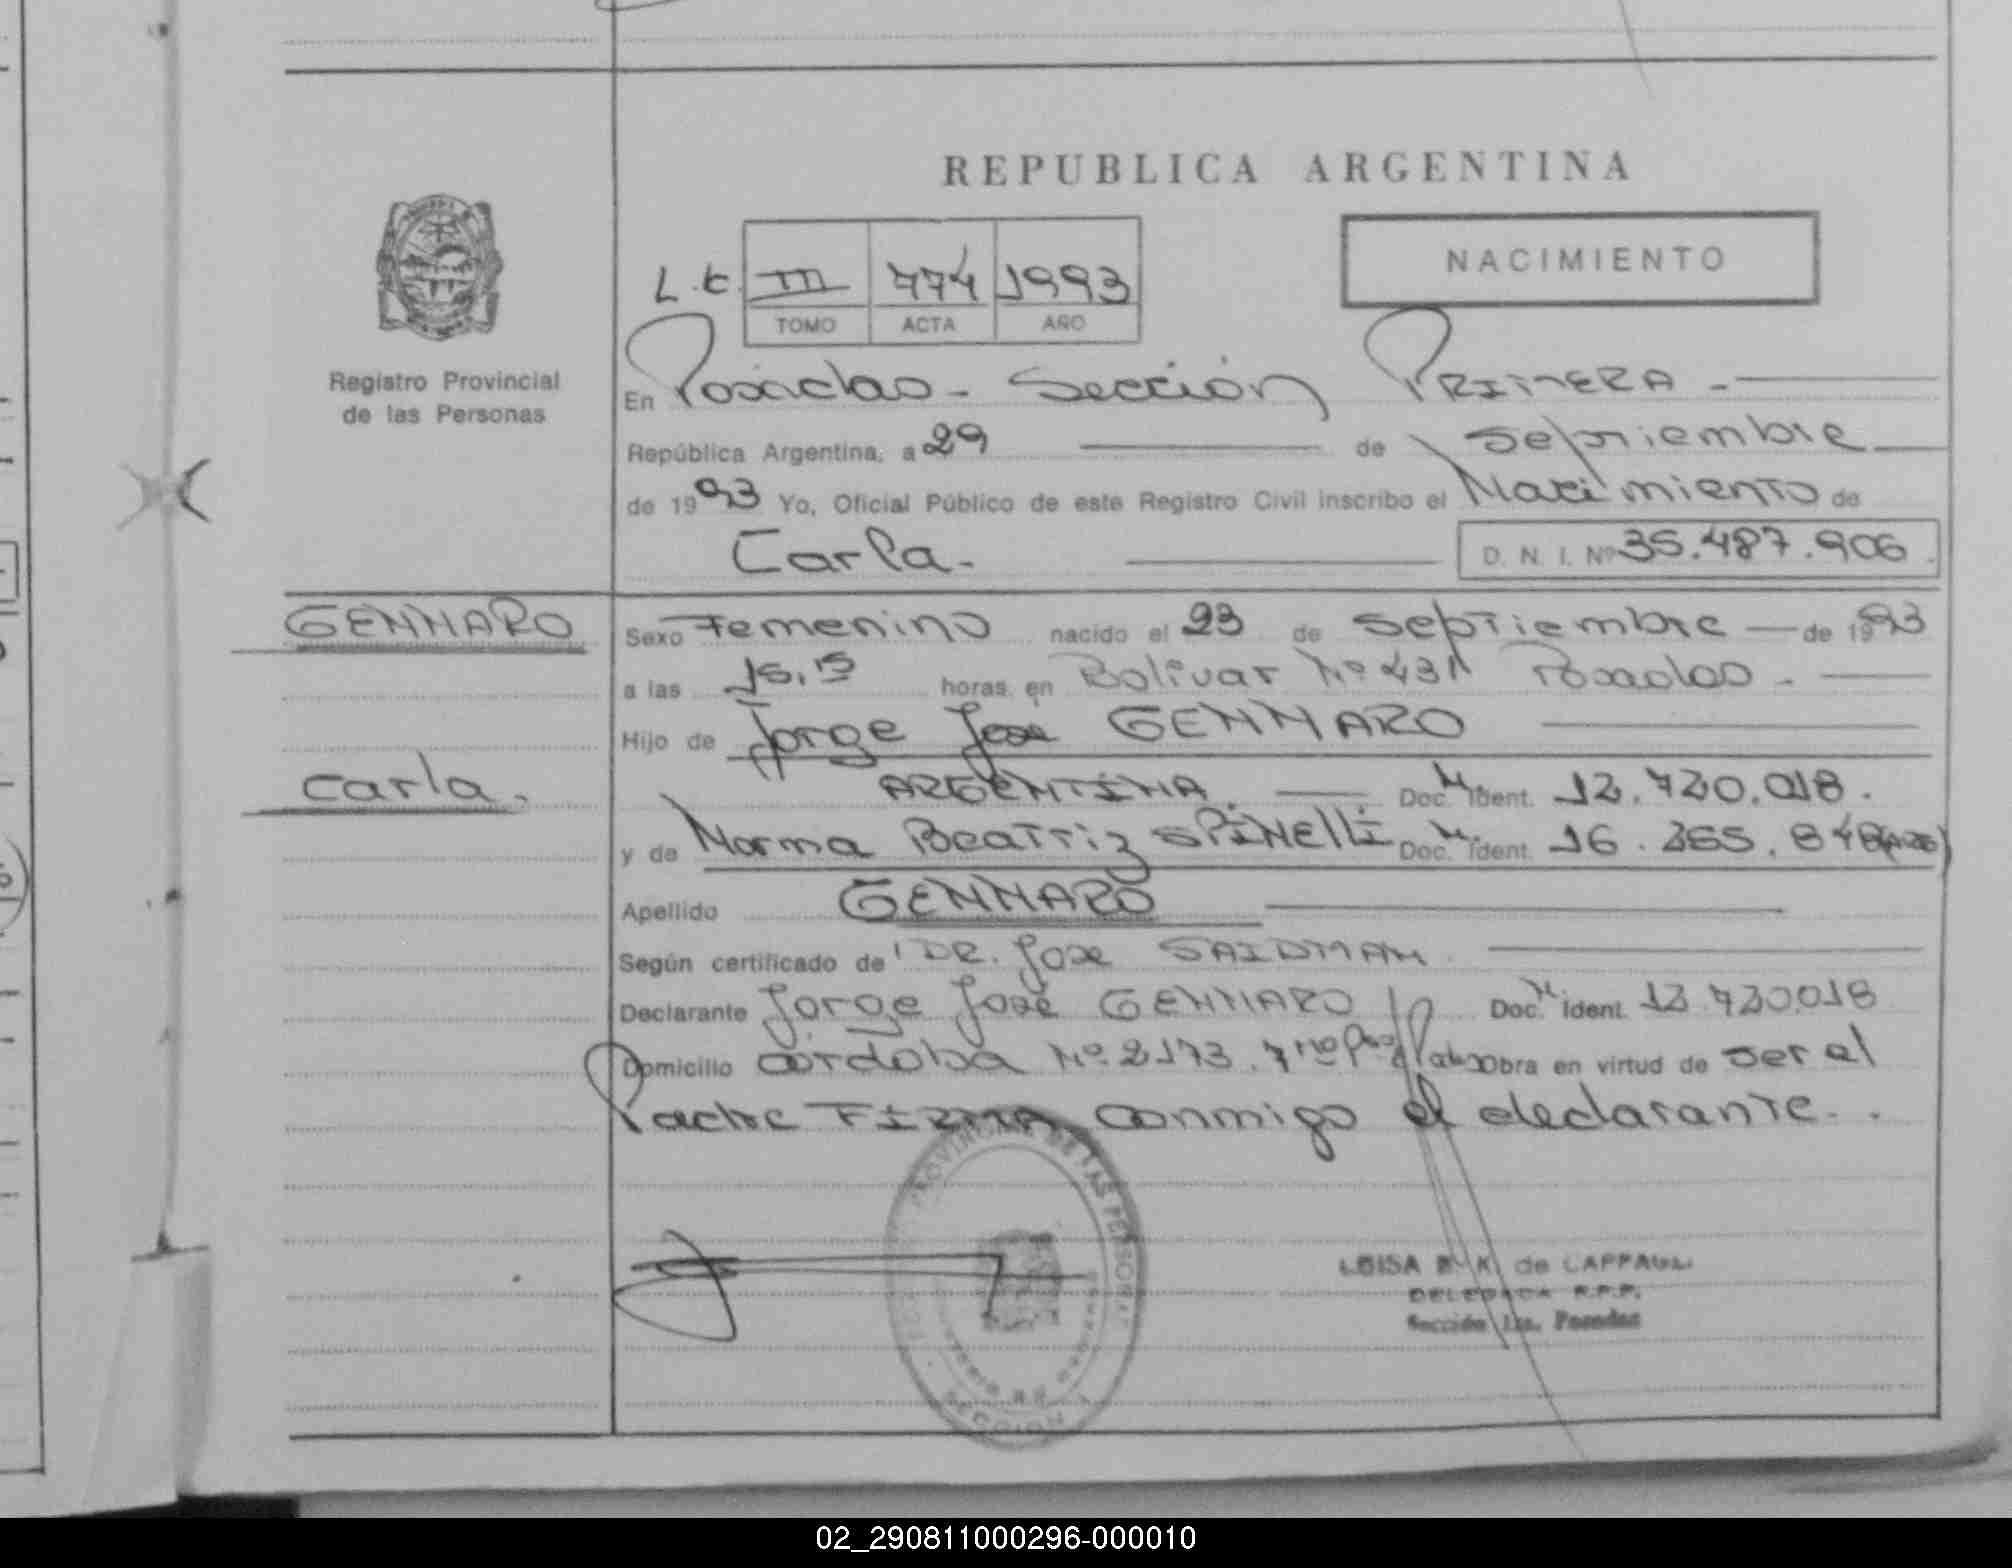 REPUBLICA ARGENTINA
NACIMIENTO
L.E. III 774 1993
TOMO ACTA AÑO
Registro Provincial
de las Personas
En Posadas - Sección PRIMERA -
República Argentina, a 29 de Septiembre
de 1993 Yo, Oficial Público de este Registro Civil inscribo el Nacimiento de
Carla. D. N. I. Nº 35.487.906
GENNARO
Sexo Femenino nacido el 23 de Septiembre de 1993
a las 15,15 horas, en Bolivar Nº 431 Posadas -
Hijo de Jorge José GENNARO
Carla.
ARGENTINA. Doc. Ident. 12.720.018.
y de Norma Beatriz SPINELLI Doc. Ident. 16.365.848
Apellido GENNARO
Según certificado de DR. José SAIDMAN
Declarante Jorge José GENNARO Doc. Ident. 12.720.018
Domicilio Córdoba Nº 2173. 7mo Piso Obra en virtud de ser el
Padre FIRMA conmigo el declarante.
PROVINCIAL DE LAS PERSONAS
SECCION
LUISA de CAPPAGLI
DELEGADA R.P.P.
Sección 1ra. Posadas
02_290811000296-000010